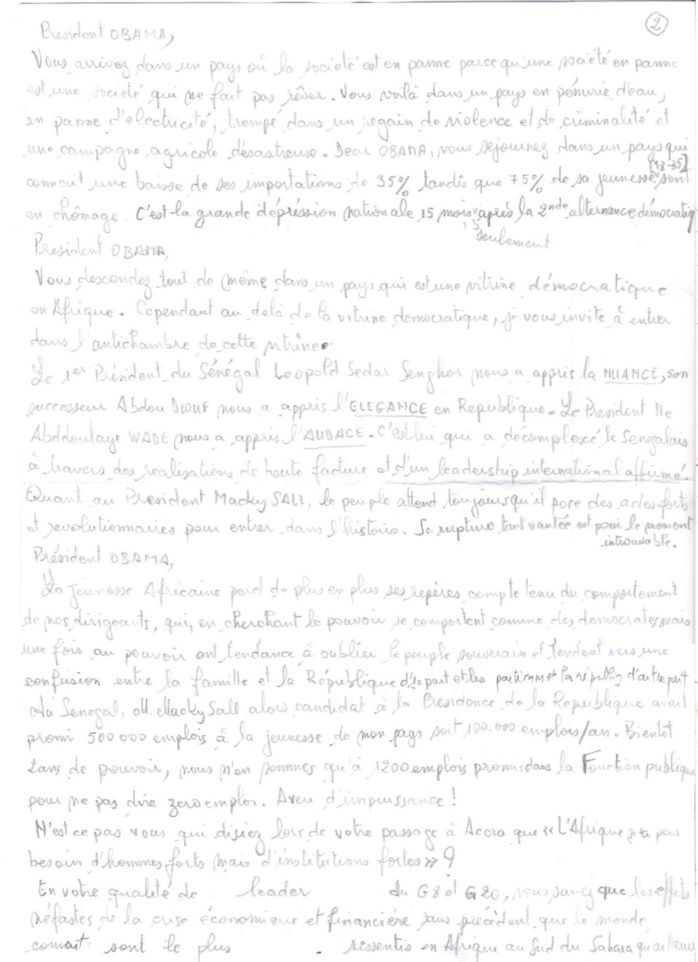 2
President OBAMA,
Vous arrivez dans un pays où la société est en panne parce qu'une société en panne
est une société qui ne fait pas rêver. Vous voilà dans un pays en pénurie d'eau,
en panne d'electricité, trempé dans un regain de violence et de criminalité et
une campagne agricole désastreuse. Dear OBAMA, vous séjournez dans un pays qui
connait une baisse de ses importations de 35% tandis que 75% de sa jeunesse [18-35] sont
en chômage. C'est la grande dépréssion nationale 15 mois après la 2nde alternance démocratiq
seulement
President OBAMA,
Vous descendez tout de même dans un pays qui est une vitrine démocratique
en Afrique. Cependant au delà de la vitrine democratique, je vous invite à entrer
dans l'antichambre de cette vitrine.
Le 1er Président du Sénégal Leopold Sedar Senghor nous a appris la NUANCE, son
successeur Abdou DIOUF nous a appris l'ELEGANCE en Republique. Le President Me
Abddoulaye WADE nous a appris l'AUDACE. C'est lui qui a décomplexé le Senegalais
à travers des realisations de haute facture et d'un leadership international affirmé.
Quant au President Macky SALL, le peuple attend toujours qu'il pose des actes forts
et revolutionnaires pour entrer dans l'histoire. Sa rupture tant vantée est pour le moment
introuvable.
Président OBAMA,
La jeunesse Africaine perd de plus en plus ses repères compte tenu du comportement
de nos dirigeants, qui, en cherchant le pouvoir se comportent comme des democrates mais
une fois au pouvoir ont tendance à oublier le peuple souverain et tendent vers une
confusion entre la famille et la République d'une part et les partisans et la républiq d'autre part.
Au Senegal, M. Macky Sall alors candidat à la Presidence de la Republique avait
promi 500 000 emplois à la jeunesse de mon pays soit 100.000 emplois/an. Bientôt
2ans de pouvoir, nous n'en sommes qu'à 1200 emplois promis dans la Fonction publique
pour ne pas dire zero emploi. Aveu d'impuissance !
N'est ce pas vous qui disiez lors de votre passage à Accra que « L'Afrique n'a pas
besoin d'hommes forts mais d'institutions fortes » ?
En votre qualité de leader du G8 et G20, vous savez que les effets
néfastes de la crise économique et financière sans precedent que le monde
connait sont le plus ressentis en Afrique au Sud du Sahara qu'ailleurs